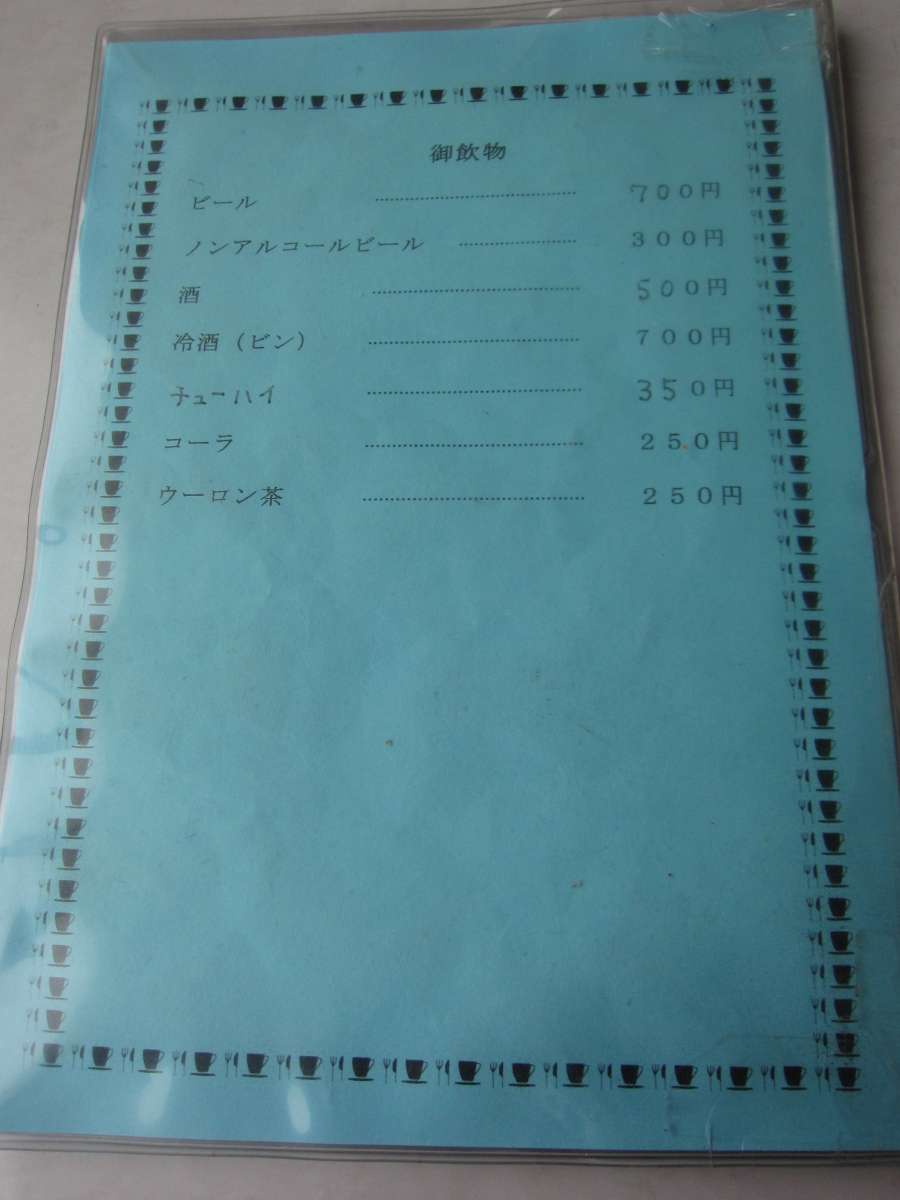 御飲物
ビール ………………………… 700円
ノンアルコールビール ……………… 300円
酒 ………………………… 500円
冷酒（ビン） ………………………… 700円
チューハイ ………………………… 350円
コーラ ………………………… 250円
ウーロン茶 ………………………… 250円